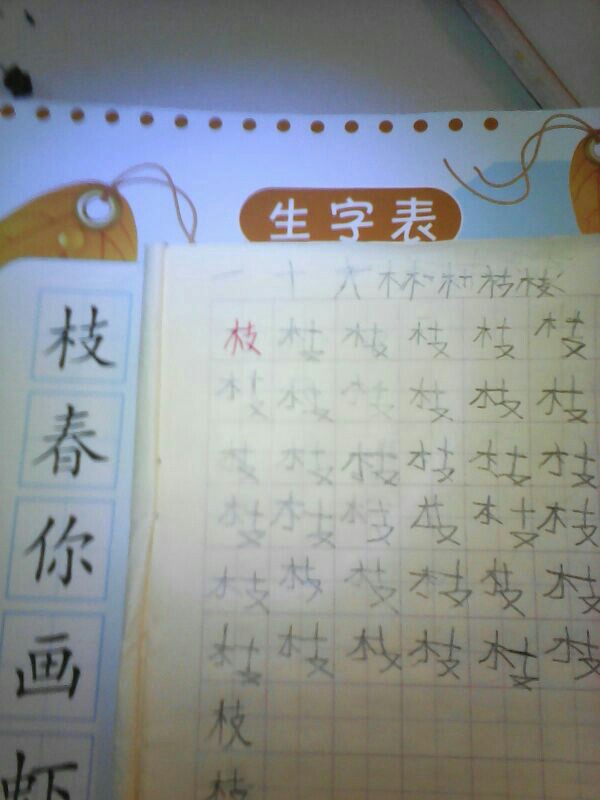 生字表
枝
春
你
画
虾
一 十 木 枝
枝 枝 枝 枝 枝 枝
枝 枝 枝 枝 枝 枝
枝 枝 枝 枝 枝 枝
枝 枝 枝 枝 枝 枝
枝 枝 枝 枝 枝 枝
枝 枝 枝 枝 枝 枝
枝
枝